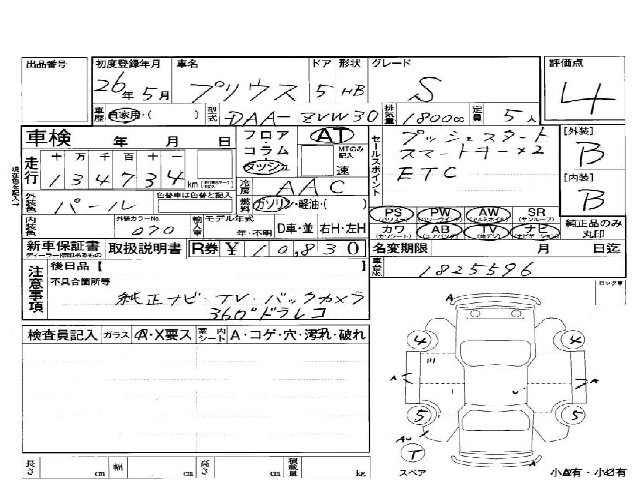 出品番号 初度登録年月 車名 ドア 形状 グレード 評価点
26年 5月 プリウス 5 HB S 4
車歴 自家用・( ) 型式 DAA-ZVW30 排気量 1800cc 定員 5人
車検 年 月 日 フロア AT セールスポイント プッシュスタート [外装]
走行 十 万 千 百 十 一 コラム MTのみ記入 スマートキー×2 B
134734 km ダッシュ 速 ETC [内装]
外装色 パール 色替車は色替と記入 冷房 AAC B
燃料 ガソリン・軽油・( )
内装色 外装カラーNo. 070 輸入車 モデル年式 年・不明 D車・並 右H・左H
PS PW AW SR (サンルーフ) 純正品のみ丸印
カワ AB TV ナビ
新車保証書 取扱説明書 R券 ¥10,830 名変期限 月 日迄
注意事項 後日品【 】 車台No. 1825596
不具合箇所等 ロック車
純正ナビ・TV・バックカメラ
360°ドラレコ
検査員記入 ガラス A・X要ス 室内 シート A・コゲ・穴・汚れ・破れ
A
4 4
A A
5 5
T
スペア A
長さ cm 幅 cm 高さ cm 積載量 kg